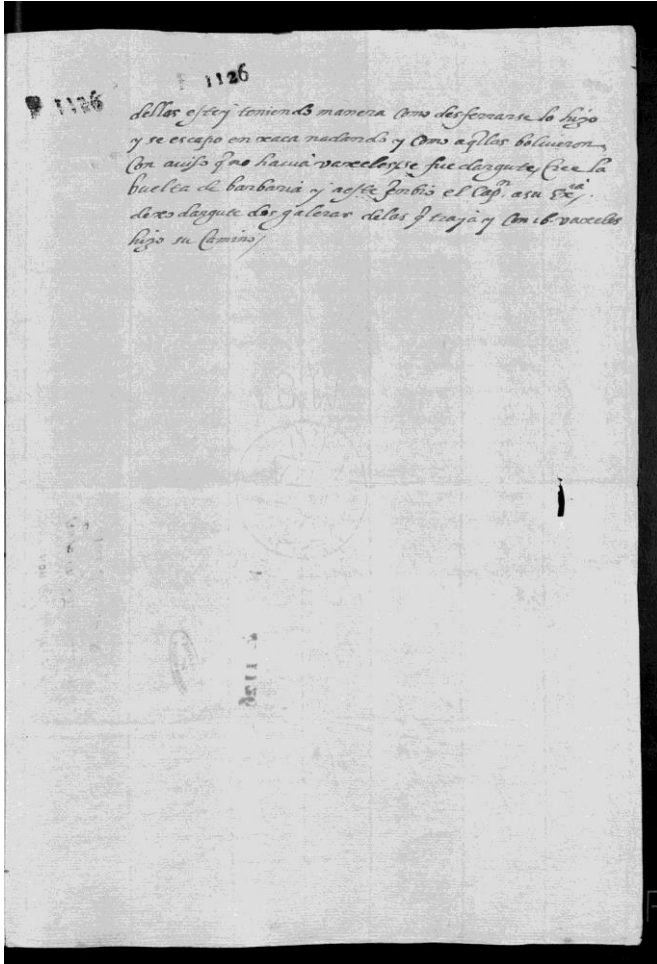 1126
1126
dellas este y teniendo manera como desferrarse lo hizo
y se escapo en xaca nadando y como aq̃llas bolvieron
con aviso q̃ no havia vaxeles, se fue dargute, cree la
buelta de barbaria y a este embio el Cap.n a su Ex.ia
dexo dargute dos galeras de las q̃ traya y con 16 vaxeles
hizo su camino /
1126